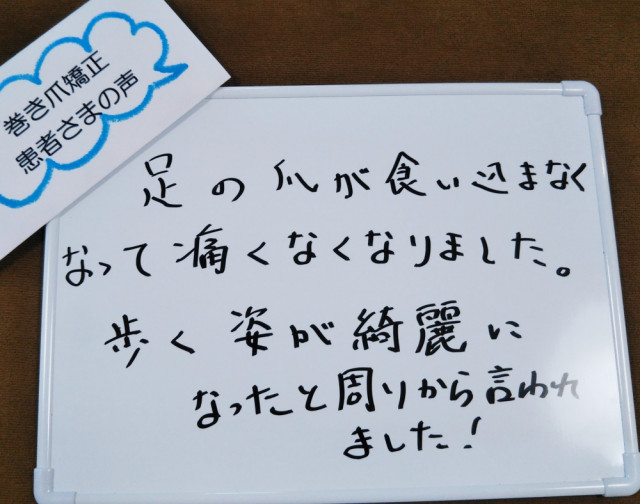 巻き爪矯正
患者さまの声
足の爪が食い込まなく
なって痛くなくなりました。
歩く姿が綺麗に
なったと周りから言われ
ました!